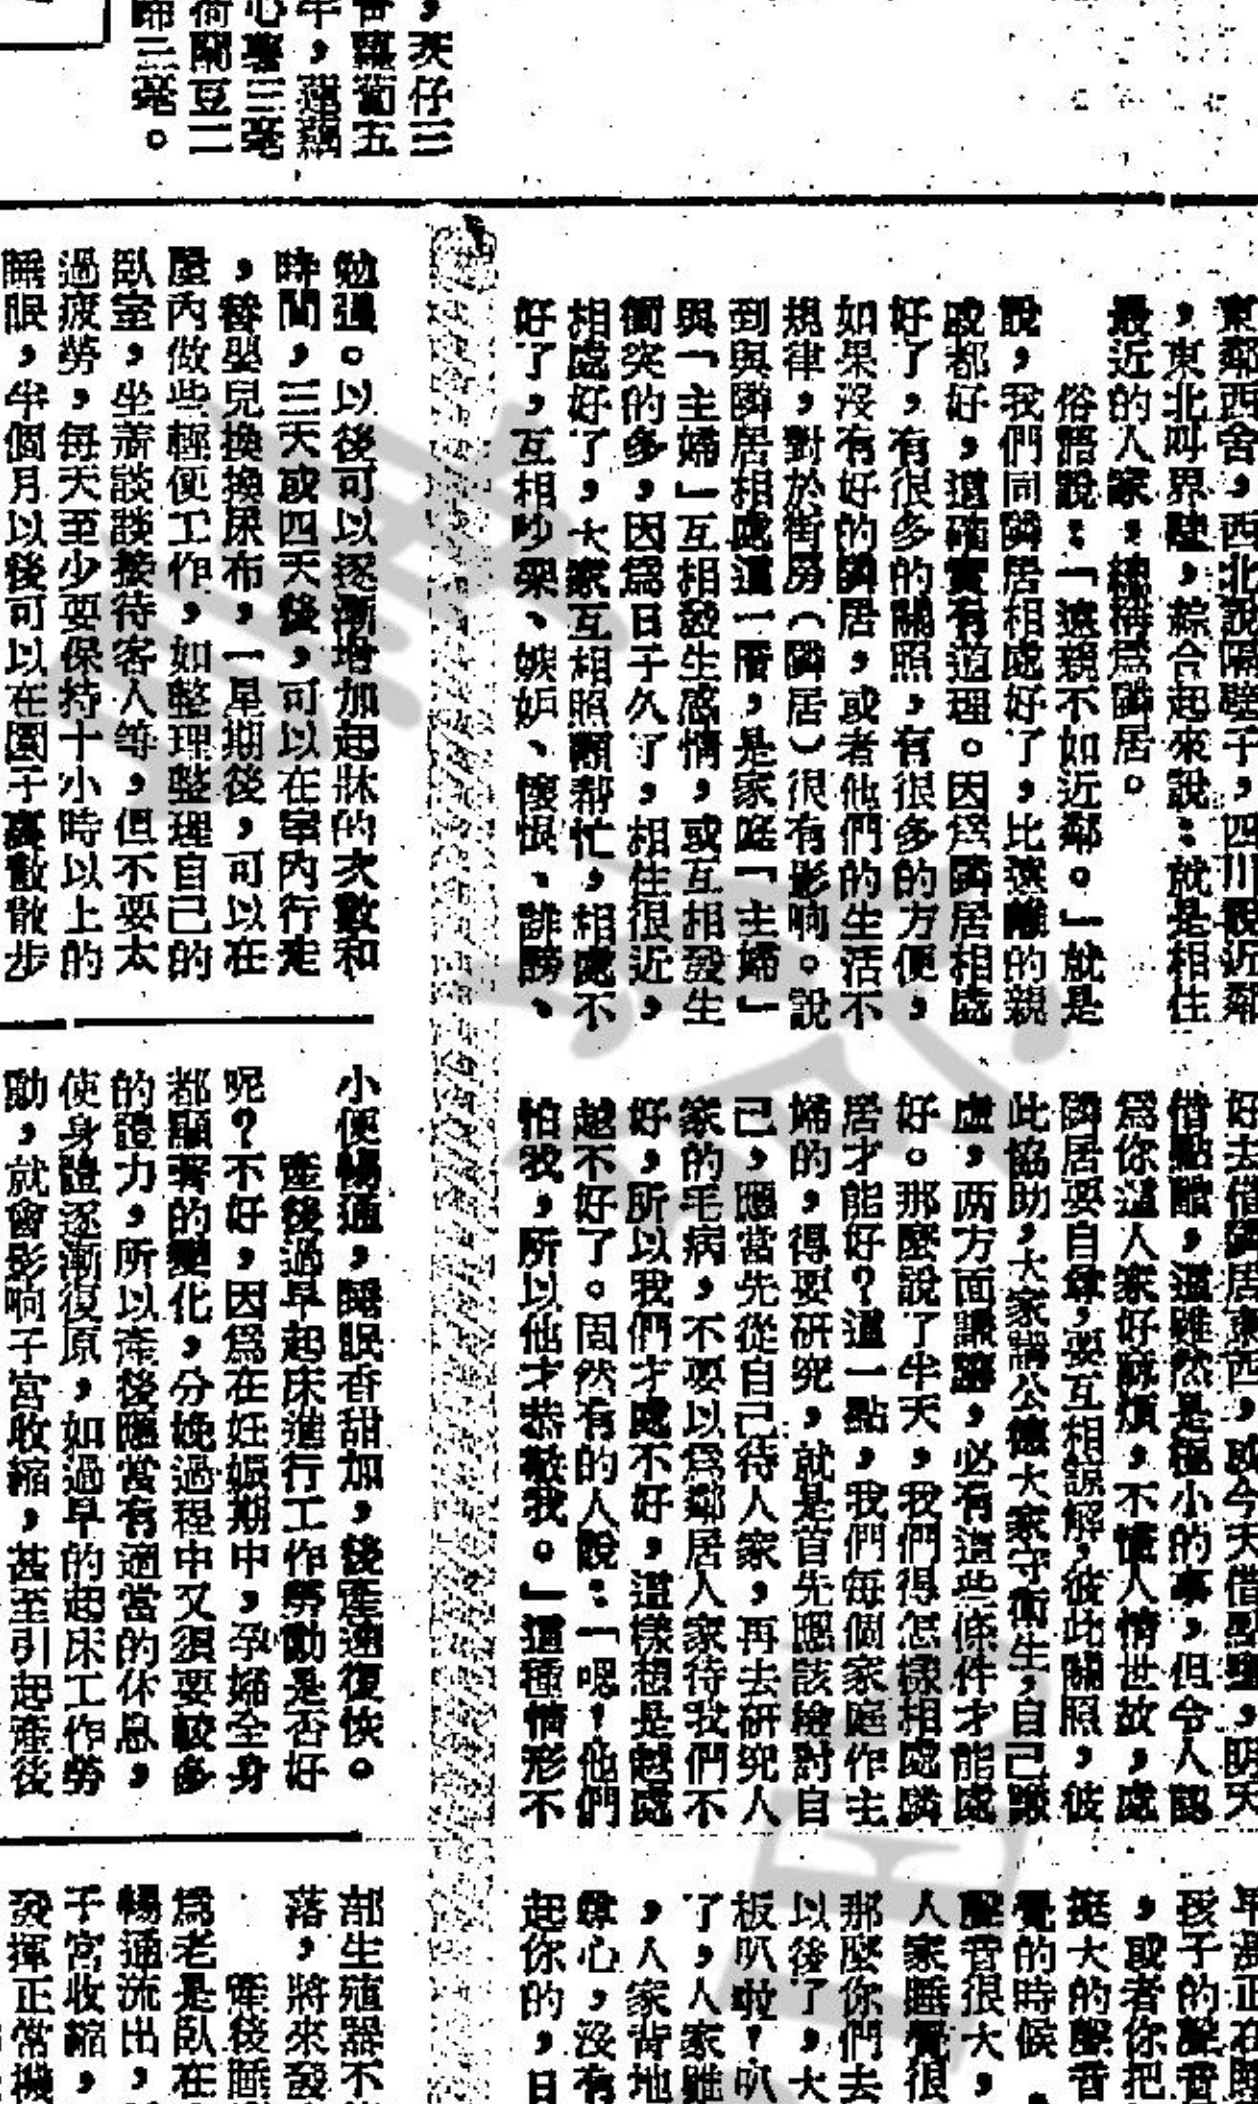 ，茨仔三
蘿蔔五
，蓮藕
心薯三毫
荷蘭豆二
三毫。
東鄰西舍，西北說隔壁子，四川說近鄰
，東北叫界壁，綜合起來說：就是相住
最近的人家，總稱爲隣居。
俗語說：「遠親不如近鄰。」就是
說，我們同隣居相處好了，比遠離的親
戚都好，這確實有道理。因爲隣居相處
好了，有很多的關照，有很多的方便，
如果沒有好的隣居，或者他們的生活不
規律，對於街房（隣居）很有影响。說
到與隣居相處這一層，是家庭「主婦」
與「主婦」互相發生感情，或互相發生
衝突的多，因爲日子久了，相住很近，
相處好了，大家互相照顧幫忙，相處不
好了，互相吵架、嫉妒、懷恨、誹謗、
好去借隣居東西，或今天借點鹽，明天
借點醋，這雖然是極小的事，但令人認
爲你這人家好麻煩，不懂人情世故，處
隣居要自尊，要互相諒解，彼此關照，彼
此協助，大家講公德大家守衛生，自己謙
虛，两方面謙讓，必有這些條件才能處
好。那麼說了半天，我們得怎樣相處隣
居才能好？這一點，我們每個家庭作主
婦的，得要研究，就是首先應該檢討自
己，應當先從自己待人家，再去研究人
家的毛病，不要以爲鄰居人家待我們不
好，所以我們才處不好，這樣想是越處
越不好了。固然有的人說：「嗯！他們
怕我，所以他才恭敬我。」這種情形不
孩子的聲音
，或者你把
挺大的聲音
覺的時候，
聲音很大，
人家睡覺很
那麼你們去
以後了，大
板叭啦？叭
了，人家雖
，人家背地
尊心，沒有
起你的，日
勉强。以後可以逐漸增加起牀的次數和
時間，三天或四天後，可以在室內行走
，替嬰兒換換尿布，一星期後，可以在
屋內做些輕便工作，如整理整理自己的
臥室，坐着談談接待客人等，但不要太
過疲勞，每天至少要保持十小時以上的
睡眠，半個月以後可以在園子裏散散步
小便暢通，睡眠香甜加，後產速復恢。
產後過早起床進行工作勞動是否好
呢？不好，因爲在妊娠期中，孕婦全身
都顯著的變化，分娩過程中又須要較多
的體力，所以產後應當有適當的休息，
使身體逐漸復原，如過早的起床工作勞
動，就會影响子宮收縮，甚至引起產後
部生殖器不
落，將來發
產後睡
爲老是臥在
暢通流出，
子宮收縮，
發揮正常機